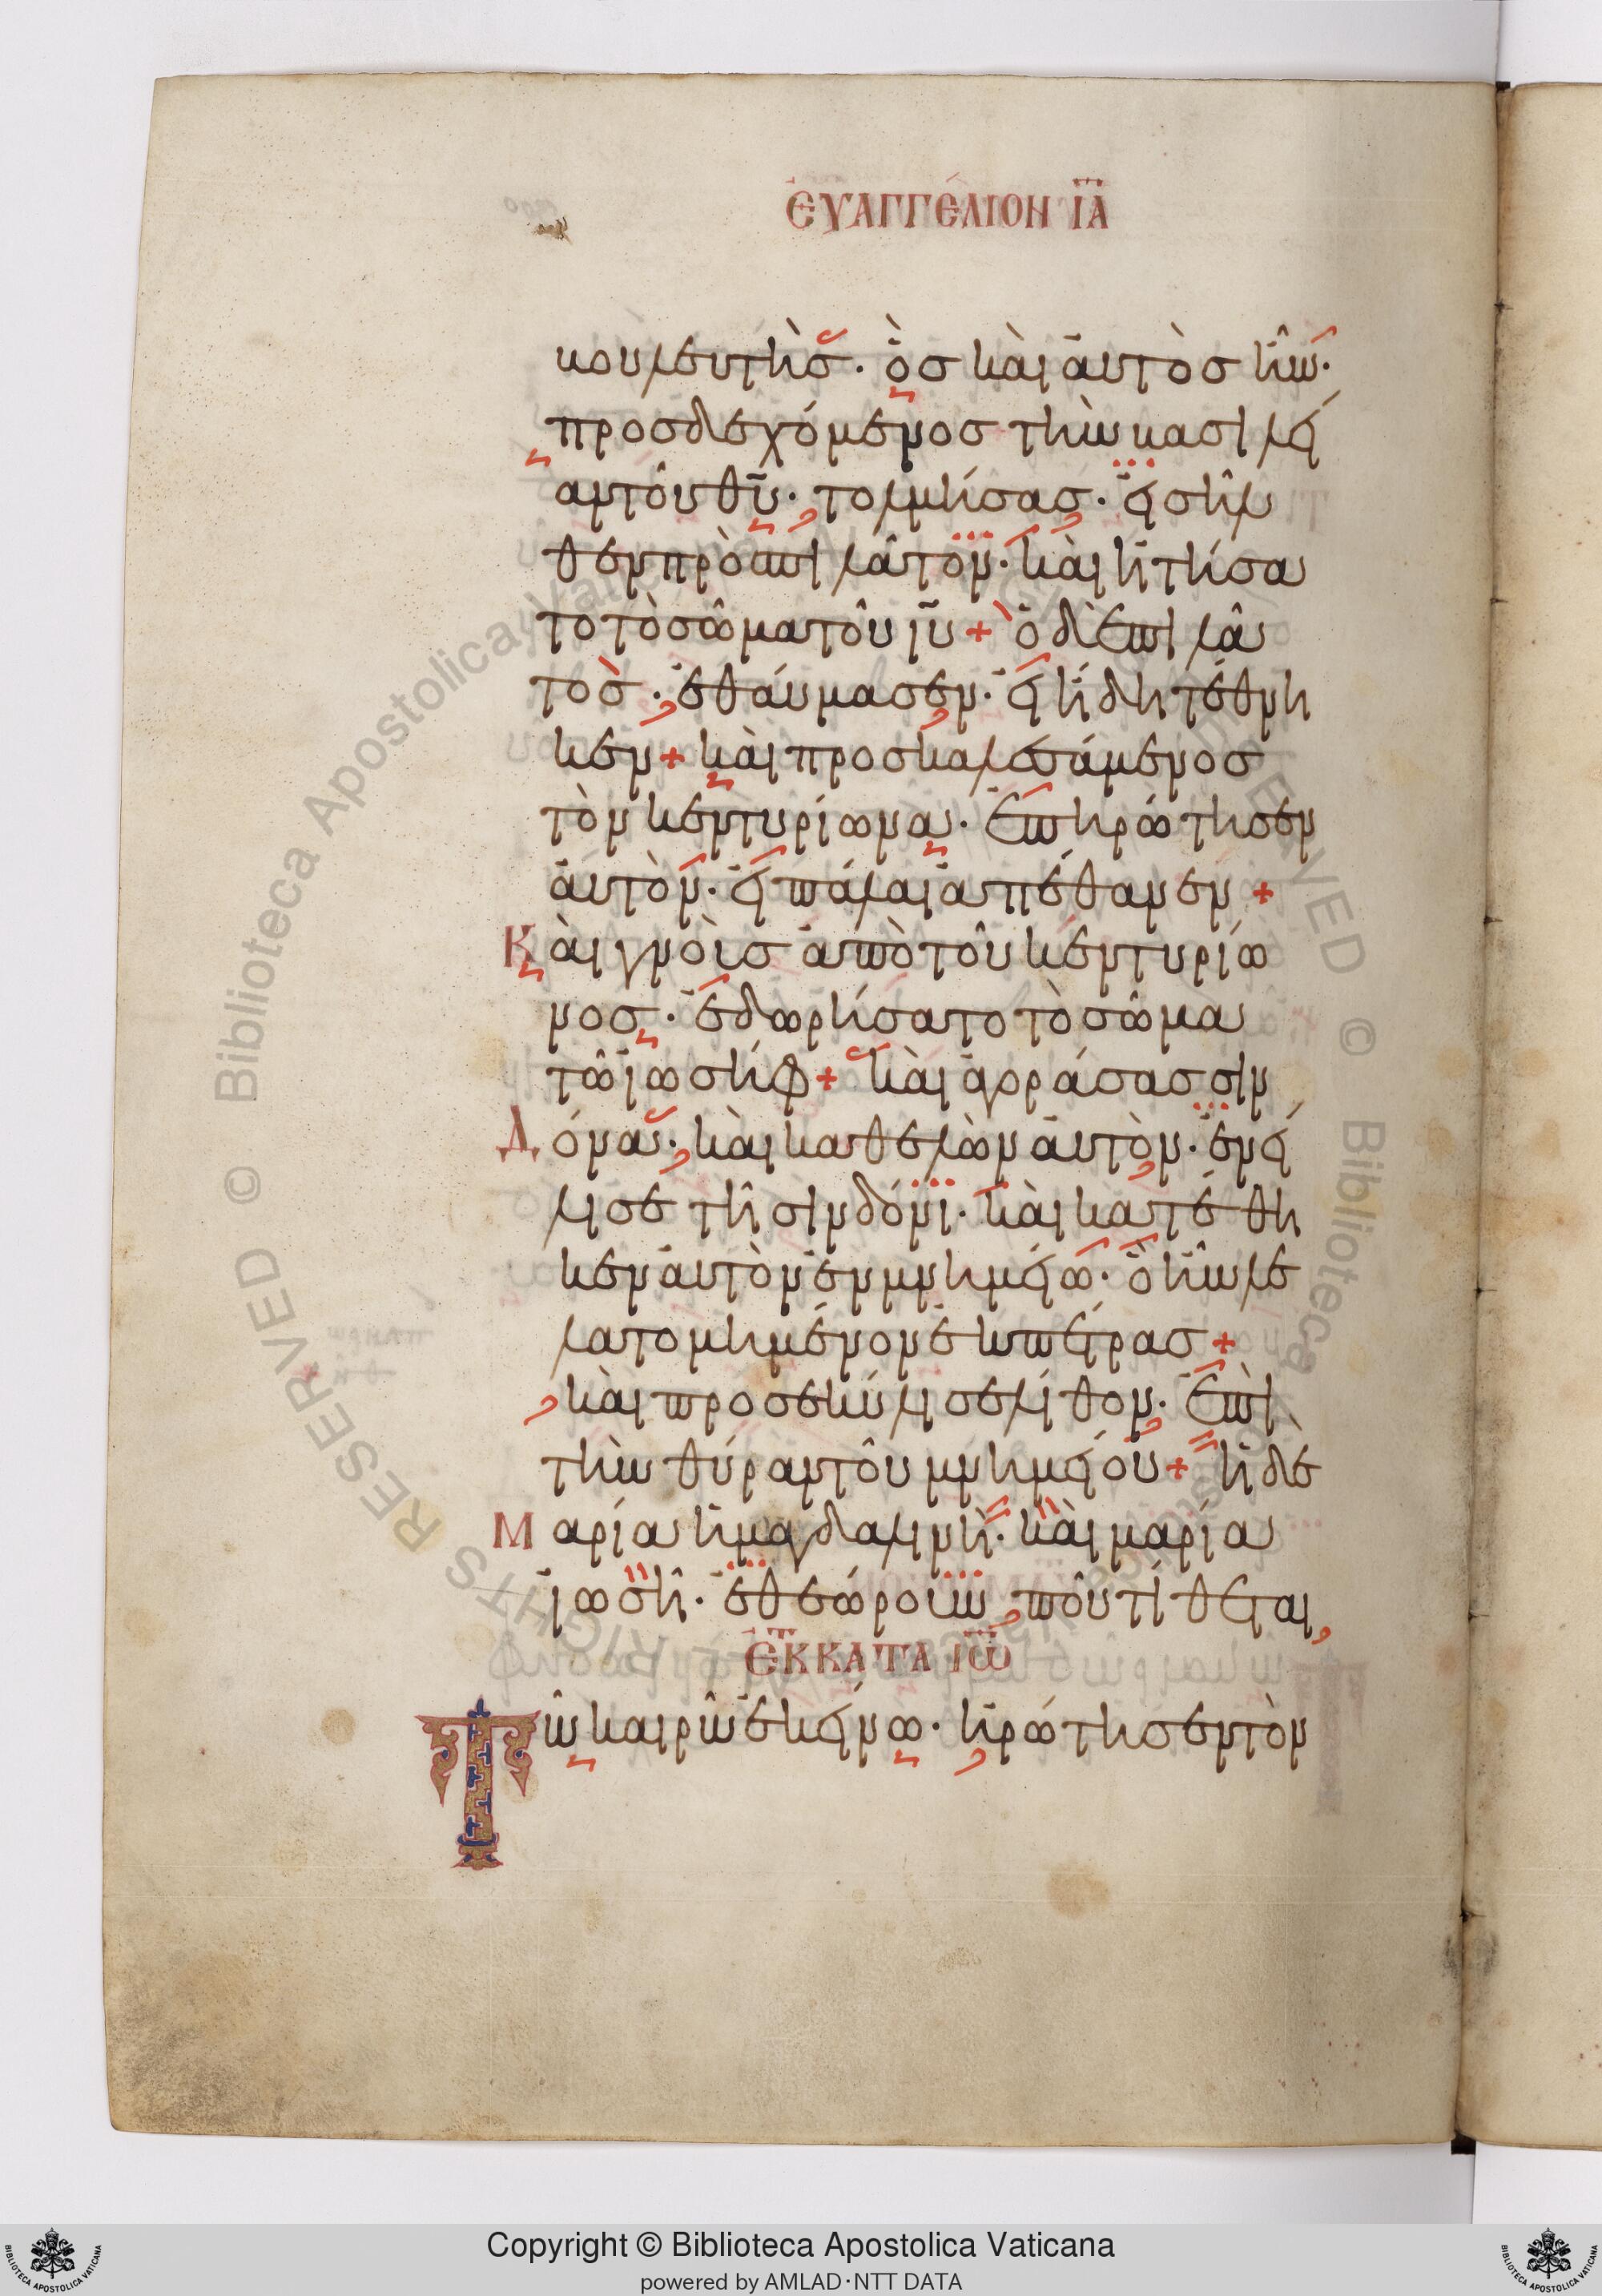 ΕΥΑΓΓΕΛΙΟΝ ΙΑ
βουλευτὴς· ὃς καὶ αὐτὸς ἦν·
προσδεχόμενος τὴν βασιλεί
αν τοῦ θ̅υ̅· τολμήσας· εἰσῆλ
θεν πρὸς πιλᾶτον· καὶ ἠτήσα
το τὸ σῶμα τοῦ ι̅υ̅ + ὁ δὲ πιλᾶ
τος· ἐθαύμασεν· εἰ ἤδη τέθνη
κεν + καὶ προσκαλεσάμενος
τὸν κεντυρίωνα· ἐπηρώτησεν
αὐτὸν· εἰ πάλαι ἀπέθανεν +
Καὶ γνοὺς ἀπὸ τοῦ κεντυρίω
νος· ἐδωρήσατο τὸ σῶμα
τῶ ἰωσήφ + καὶ ἀγοράσας σιν
Δόνα· καὶ καθελὼν αὐτὸν· ἐνεί
λισε τῆ σινδόνι· καὶ κατέθη
κεν αὐτὸν ἐν μνημείω· ὃ ἦν λε
λατομημένον ἐκ πέτρας +
καὶ προσεκύλισε λίθον· ἐπὶ
τὴν θύραν τοῦ μνημείου + ἡ δὲ
Μαρία ἡ μαγδαλινὴ· καὶ μαρία
ἰωσῆ· ἐθεώρουν ποῦ τίθεται
ἐκ κατα ιω
Τῶ καιρῶ ἐκείνω· ἠρώτησεν τὸν
Copyright © Biblioteca Apostolica Vaticana
powered by AMLAD·NTT DATA